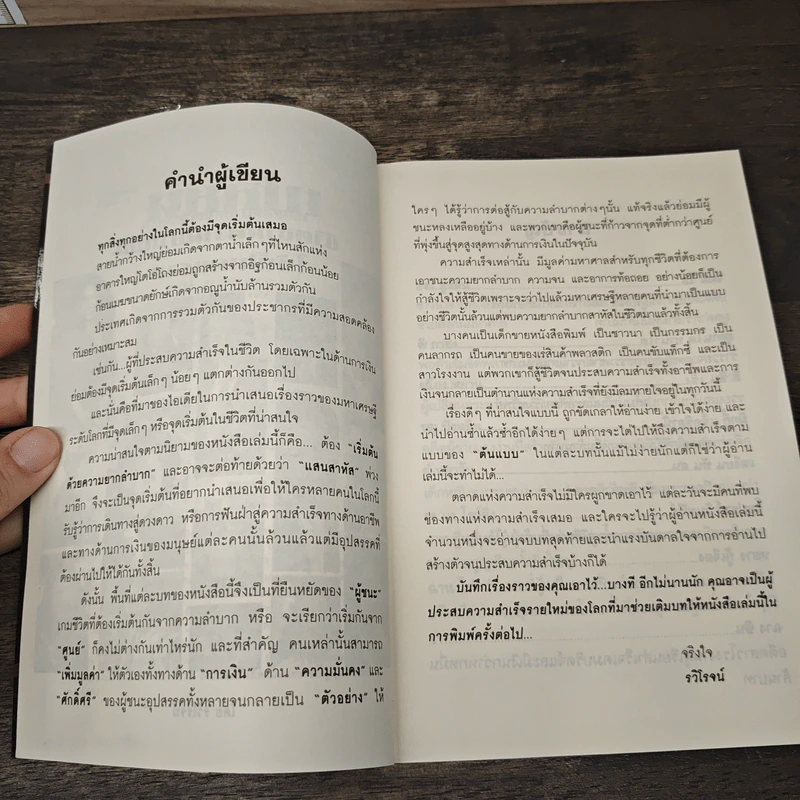 คำนำผู้เขียน
ทุกสิ่งทุกอย่างในโลกนี้ต้องมีจุดเริ่มต้นเสมอ
สายน้ำกว้างใหญ่ย่อมเกิดจากตาน้ำเล็กๆที่ไหนสักแห่ง
อาคารใหญ่โตโอ่โถงย่อมถูกสร้างจากอิฐก้อนเล็กก้อนน้อย
ก้อนเมฆขนาดยักษ์เกิดจากอณูน้ำนับล้านรวมตัวกัน
ประเทศเกิดจากการรวมตัวกันของประชากรที่มีความสอดคล้อง
กันอย่างเหมาะสม
เช่นกัน...ผู้ที่ประสบความสำเร็จในชีวิต โดยเฉพาะในด้านการเงิน
ย่อมต้องมีจุดเริ่มต้นเล็กๆ น้อยๆ แตกต่างกันออกไป
และนั่นคือที่มาของไอเดียในการนำเสนอเรื่องราวของมหาเศรษฐี
ระดับโลกที่มีจุดเล็กๆ หรือจุดเริ่มต้นในชีวิตที่น่าสนใจ
ความน่าสนใจตามนิยามของหนังสือเล่มนี้ก็คือ... ต้อง "เริ่มต้น
ด้วยความยากลำบาก" และอาจจะต่อท้ายด้วยว่า "แสนสาหัส" พ่วง
มาอีก จึงจะเป็นจุดเริ่มต้นที่อยากนำเสนอเพื่อให้ใครหลายคนในโลกนี้
รับรู้ว่าการเดินทางสู่ดวงดาว หรือการฟันฝ่าสู่ความสำเร็จทางด้านอาชีพ
และทางด้านการเงินของมนุษย์แต่ละคนนั้นล้วนแล้วแต่มีอุปสรรคที่
ต้องผ่านไปให้ได้กันทั้งสิ้น
ดังนั้น พื้นที่แต่ละบทของหนังสือนี้จึงเป็นที่ยืนหยัดของ "ผู้ชนะ"
เกมชีวิตที่ต้องเริ่มต้นกันจากความลำบาก หรือ จะเรียกว่าเริ่มกันจาก
"ศูนย์" ก็คงไม่ต่างกันเท่าไหร่นัก และที่สำคัญ คนเหล่านั้นสามารถ
"เพิ่มมูลค่า" ให้ตัวเองทั้งทางด้าน "การเงิน" ด้าน "ความมั่นคง" และ
"ศักดิ์ศรี" ของผู้ชนะอุปสรรคทั้งหลายจนกลายเป็น "ตัวอย่าง" ให้
ใครๆ ได้รู้ว่าการต่อสู้กับความลำบากต่างๆนั้น แท้จริงแล้วย่อมมีผู้
ชนะหลงเหลืออยู่บ้าง และพวกเขาคือผู้ชนะที่ก้าวจากจุดที่ต่ำกว่าศูนย์
ที่พุ่งขึ้นสู่จุดสูงสุดทางด้านการเงินในปัจจุบัน
ความสำเร็จเหล่านั้น มีมูลค่ามหาศาลสำหรับทุกชีวิตที่ต้องการ
เอาชนะความยากลำบาก ความจน และอาการท้อถอย อย่างน้อยก็เป็น
กำลังใจให้สู้ชีวิตเพราะจะว่าไปแล้วมหาเศรษฐีหลายคนที่นำมาเป็นแบบ
อย่างชีวิตนั้นล้วนแต่พบความยากลำบากสาหัสในชีวิตมาแล้วทั้งสิ้น
บางคนเป็นเด็กขายหนังสือพิมพ์ เป็นชาวนา เป็นกรรมกร เป็น
คนลากรถ เป็นคนขายของเร่สินค้าพลาสติก เป็นคนขับแท็กซี่ และเป็น
สาวโรงงาน แต่พวกเขาก็สู้ชีวิตจนประสบความสำเร็จทั้งอาชีพและการ
เงินจนกลายเป็นตำนานแห่งความสำเร็จที่ยังมีลมหายใจอยู่ในทุกวันนี้
เรื่องดีๆ ที่น่าสนใจแบบนี้ ถูกขัดเกลาให้อ่านง่าย เข้าใจได้ง่าย และ
นำไปอ่านซ้ำแล้วซ้ำอีกได้ง่ายๆ แต่การจะไต่ไปให้ถึงความสำเร็จตาม
แบบของ "ต้นแบบ" ในแต่ละบทนั้นแม้ไม่ง่ายนักแต่ก็ใช่ว่าผู้อ่าน
เล่มนี้จะทำไม่ได้...
ตลาดแห่งความสำเร็จไม่มีใครผูกขาดเอาไว้ แต่ละวันจะมีคนที่พบ
ช่องทางแห่งความสำเร็จเสมอ และใครจะไปรู้ว่าผู้อ่านหนังสือเล่มนี้
จำนวนหนึ่งจะอ่านจบบทสุดท้ายและนำแรงบันดาลใจจากการอ่านไป
สร้างตัวจนประสบความสำเร็จบ้างก็ได้
บันทึกเรื่องราวของคุณเอาไว้...บางที อีกไม่นานนัก คุณอาจเป็นผู้
ประสบความสำเร็จรายใหม่ของโลกที่มาช่วยเติมบทให้หนังสือเล่มนี้ใน
การพิมพ์ครั้งต่อไป...
จริงใจ
รวิโรจน์